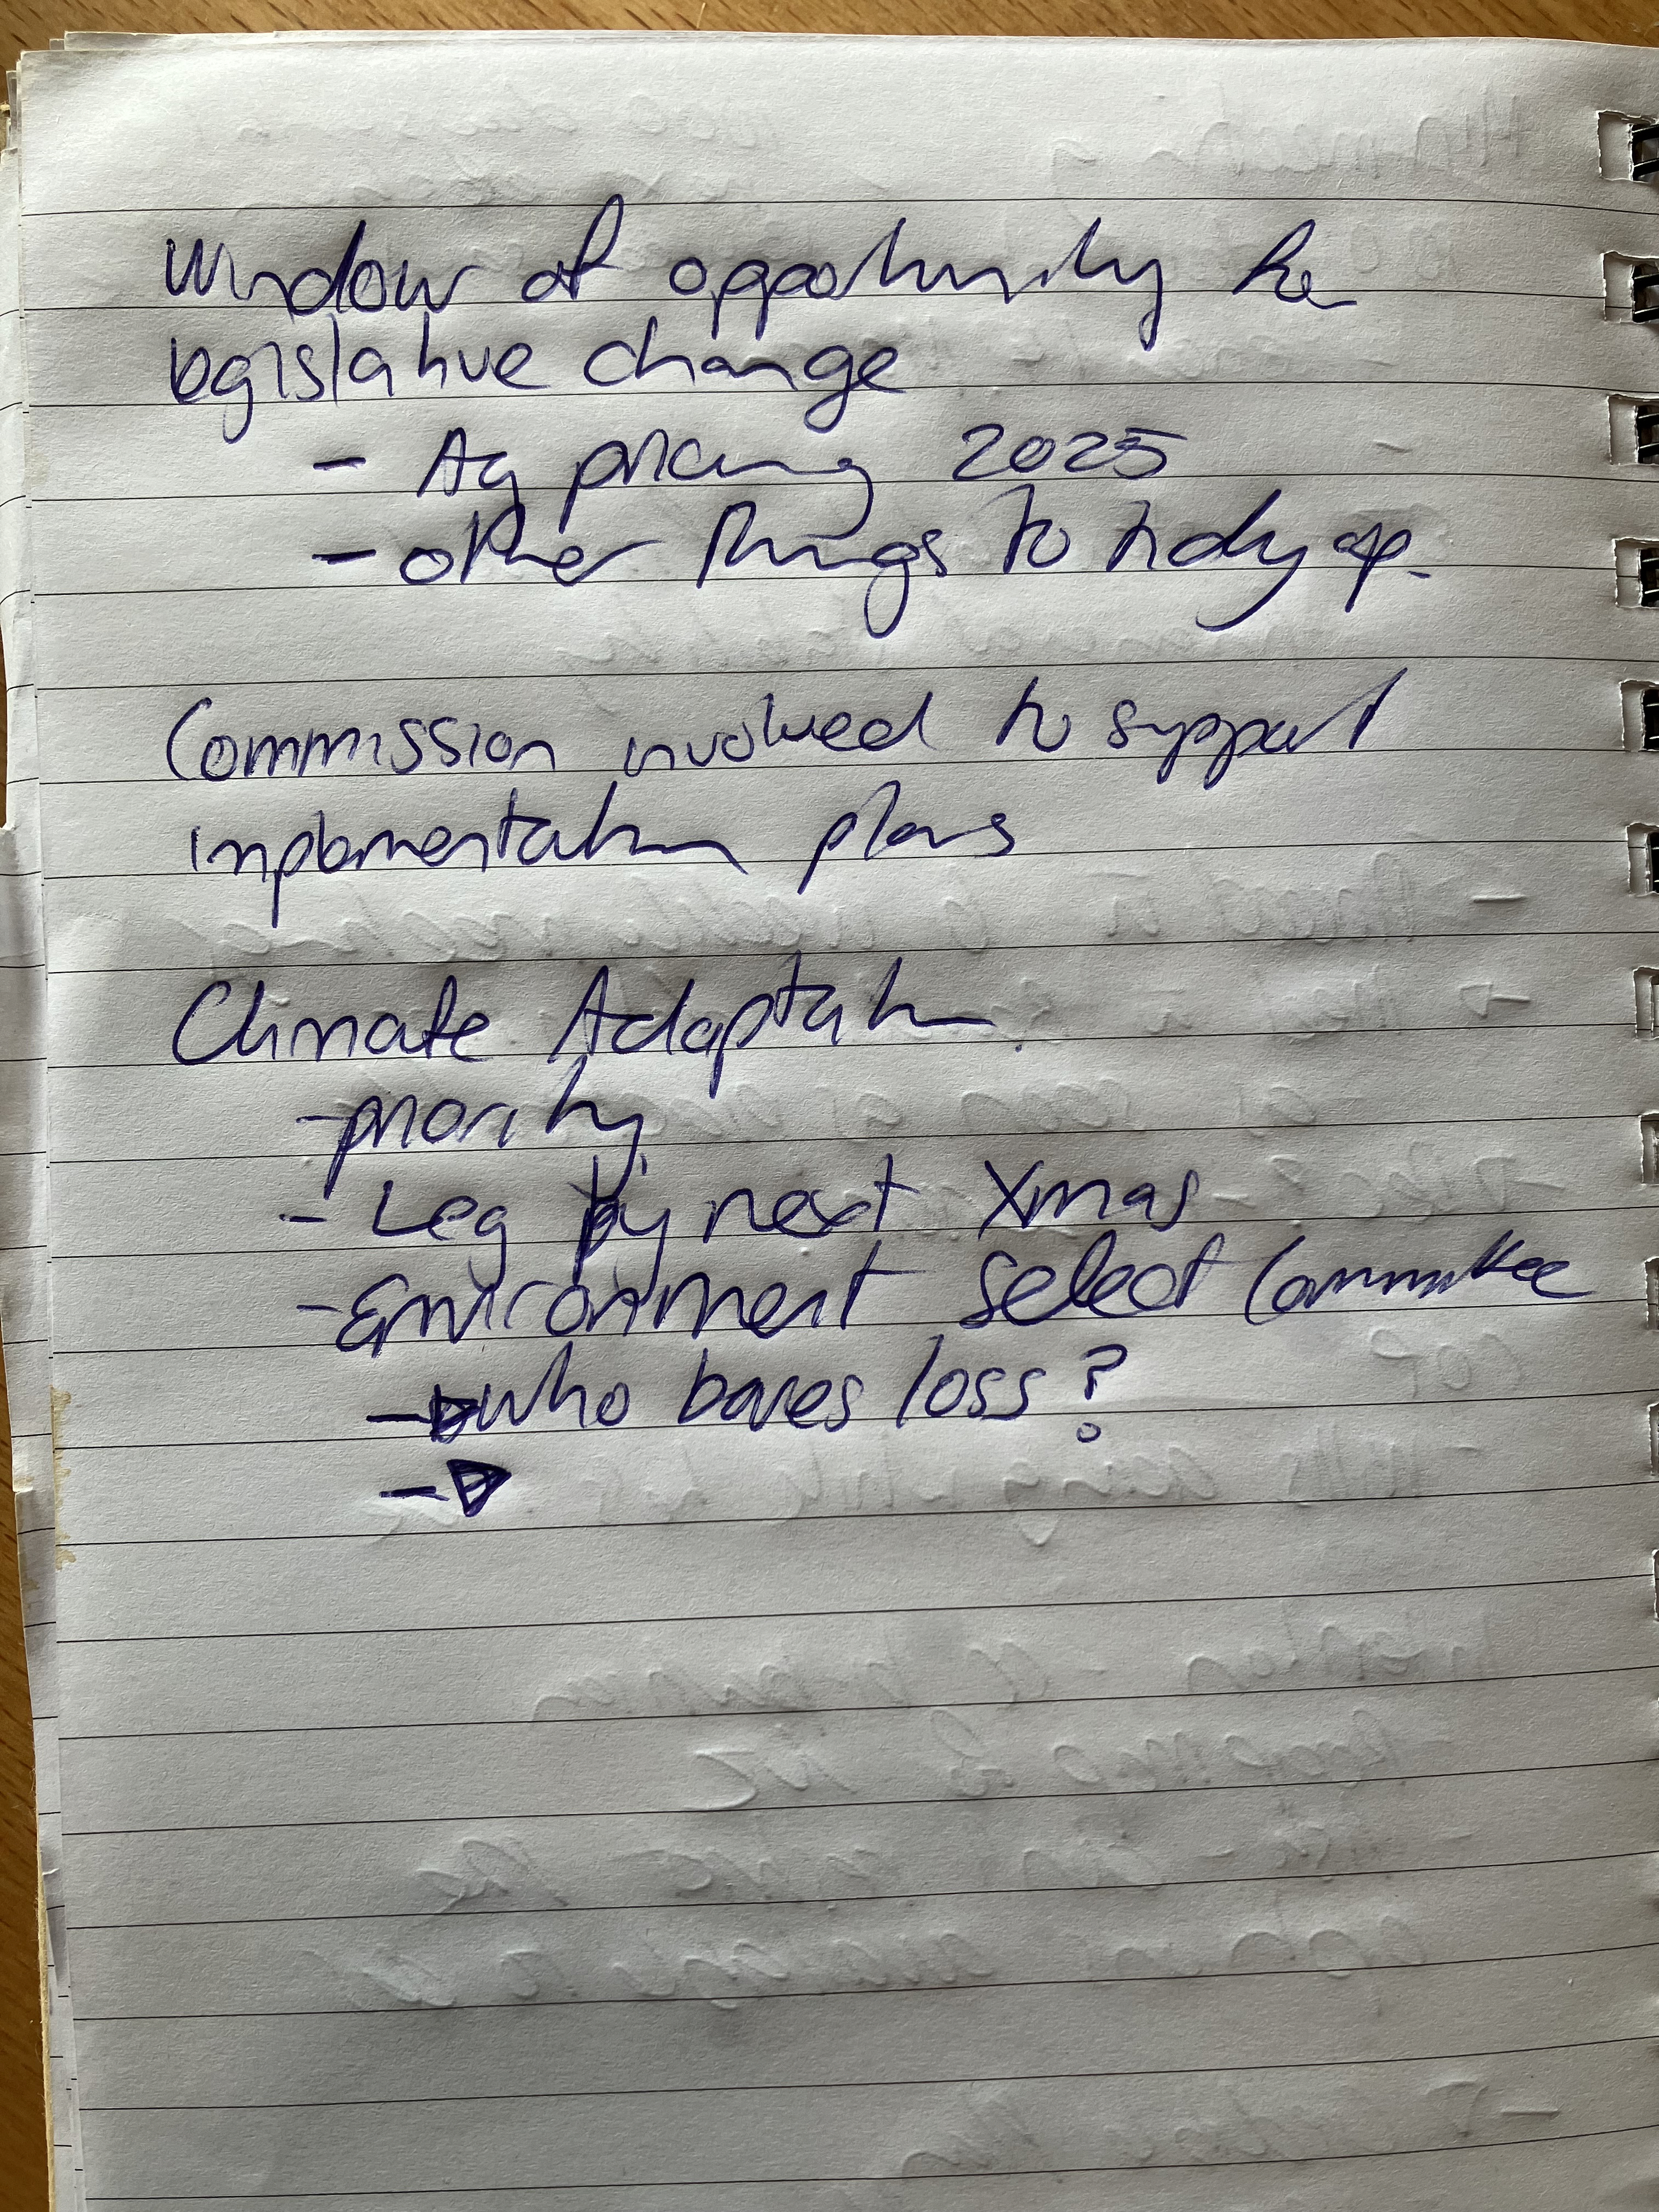 Window of opportunity for
legislative change
- Ag pricing 2025
- other things to tidy up.
Commission involved to support
implementation plans
Climate Adaptation.
- priority
- Leg by next Xmas
- Environment Select Committee
-> who bares loss?
->